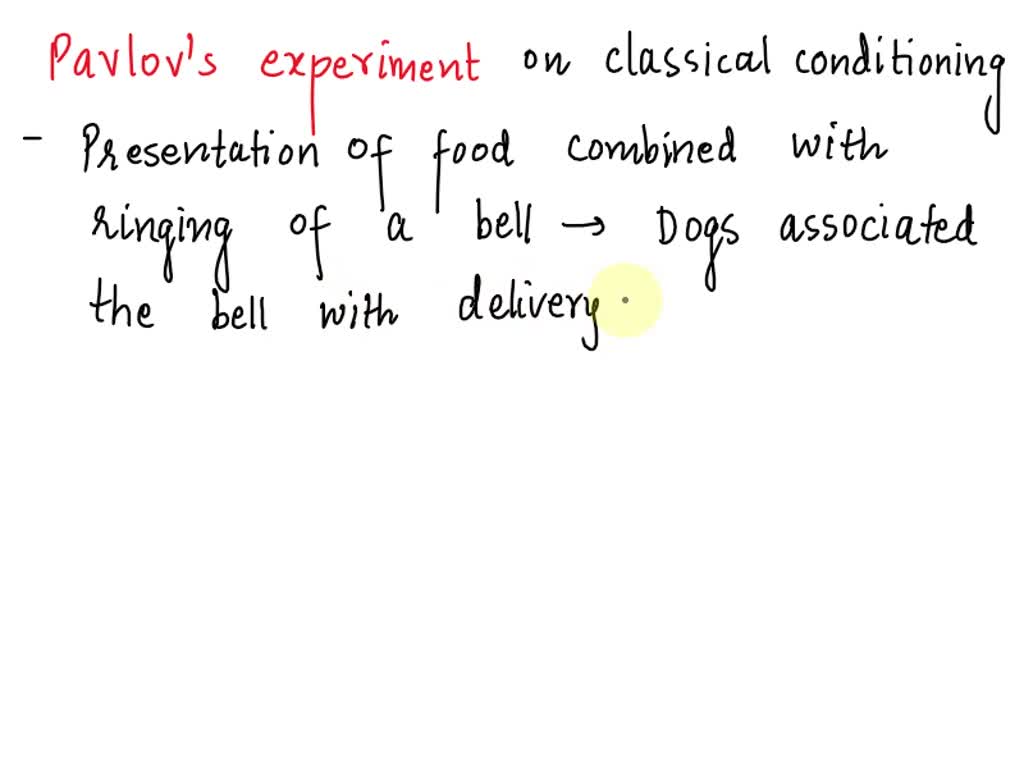 Pavlov's experiment on classical conditioning
- Presentation of food combined with
ringing of a bell → Dogs associated
the bell with delivery